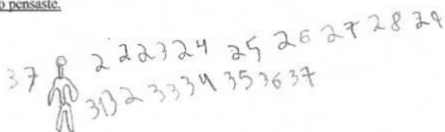 o pensaste.
37
2 22 23 24 25 26 27 28 29
31 32 33 34 35 36 37